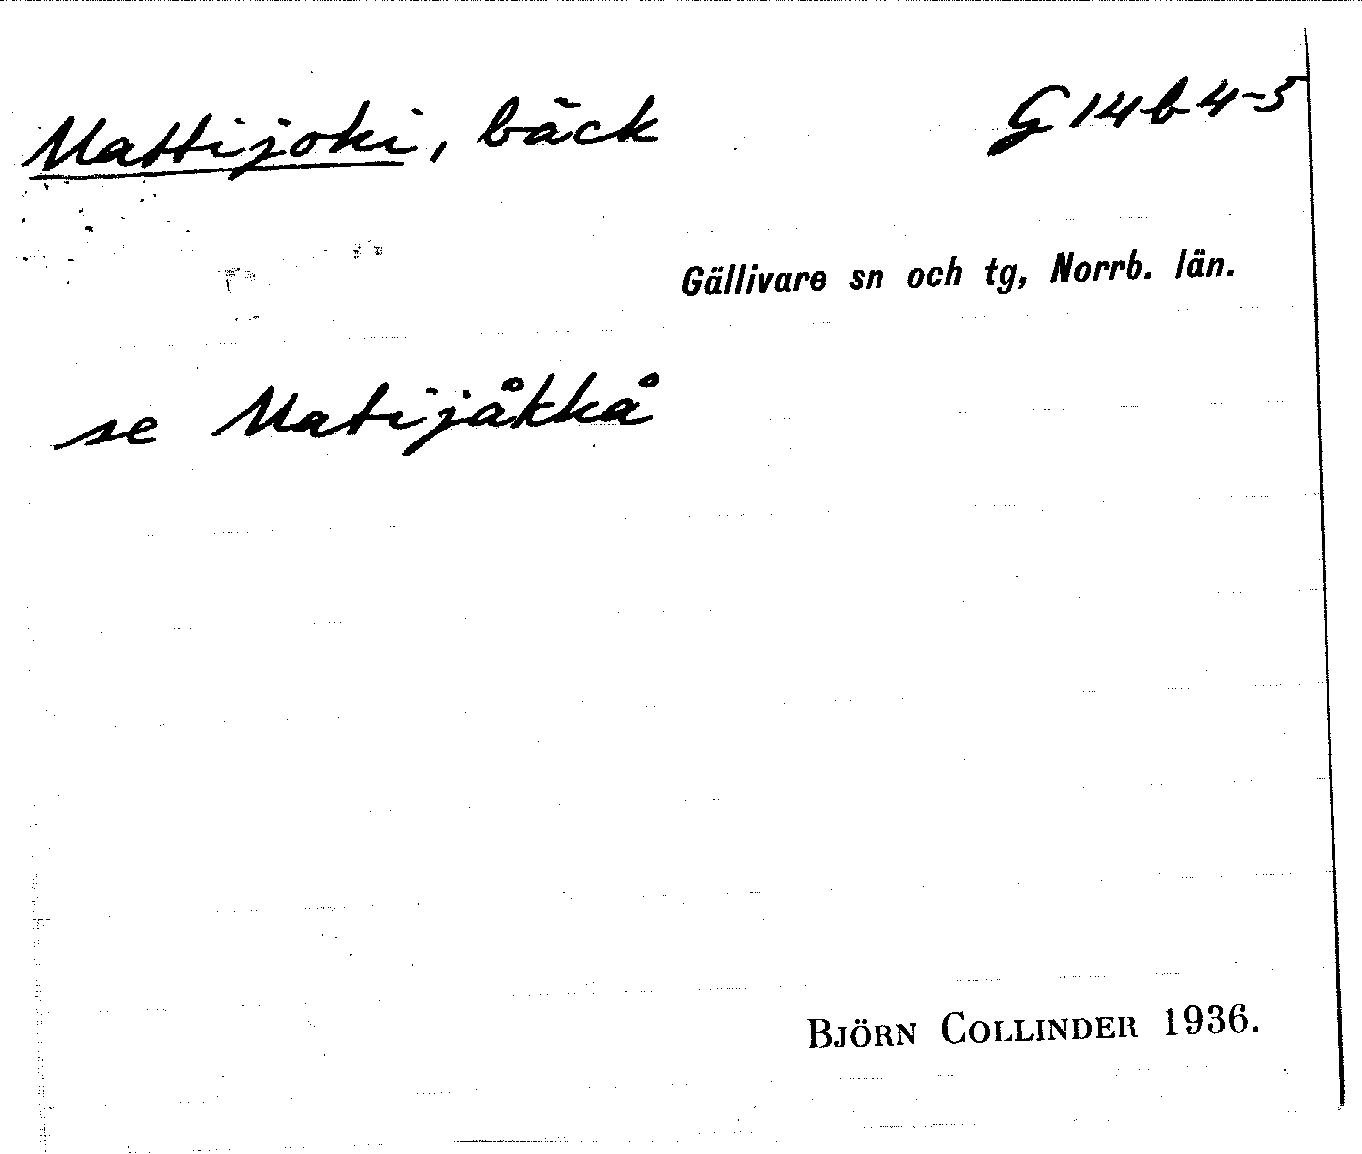 Mattijoki, bäck G 14 b 4-5
Gällivare sn och tg, Norrb. län.
se Matijåkkå
BJÖRN COLLINDER 1936.